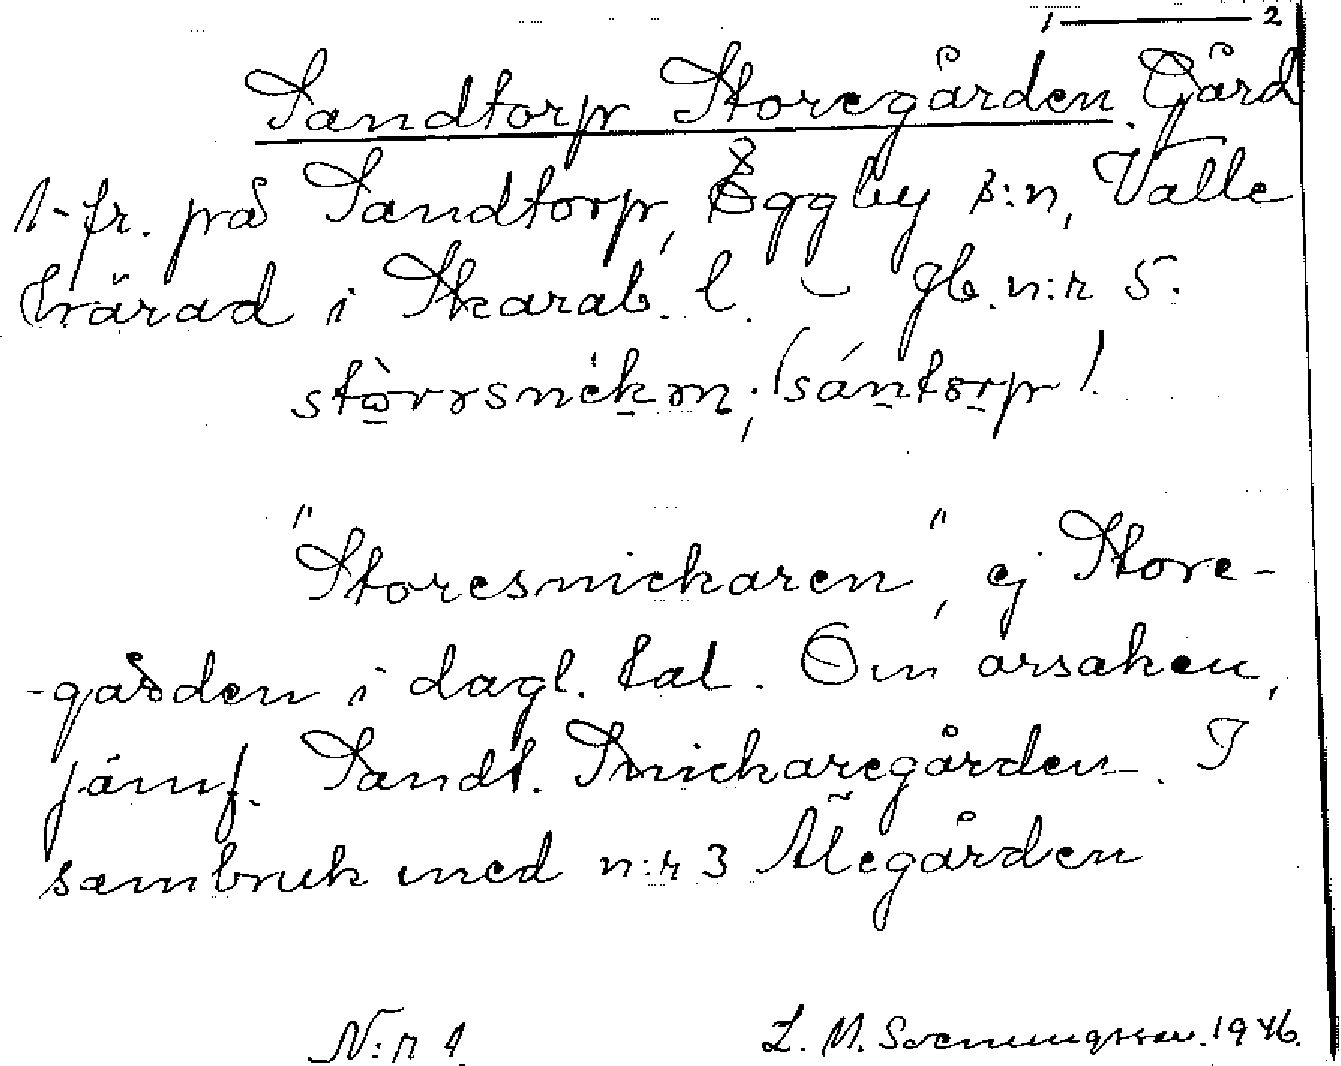 1 — 2
Sandtorp Storegården. Gård
1-fr. på Sandtorp, Eggby s:n, Valle
härad i Skarab. l. — Jb. n:r 5.
stòrrsnikɐn; (sántorp)
"Storesnickaren", ej Store-
-gården i dagl. tal. Om orsaken,
jämf. Sandt. Snickaregården. I
sambruk med n:r 3 Ålegården
N:r 1. L. M. Svenungsson. 1946.